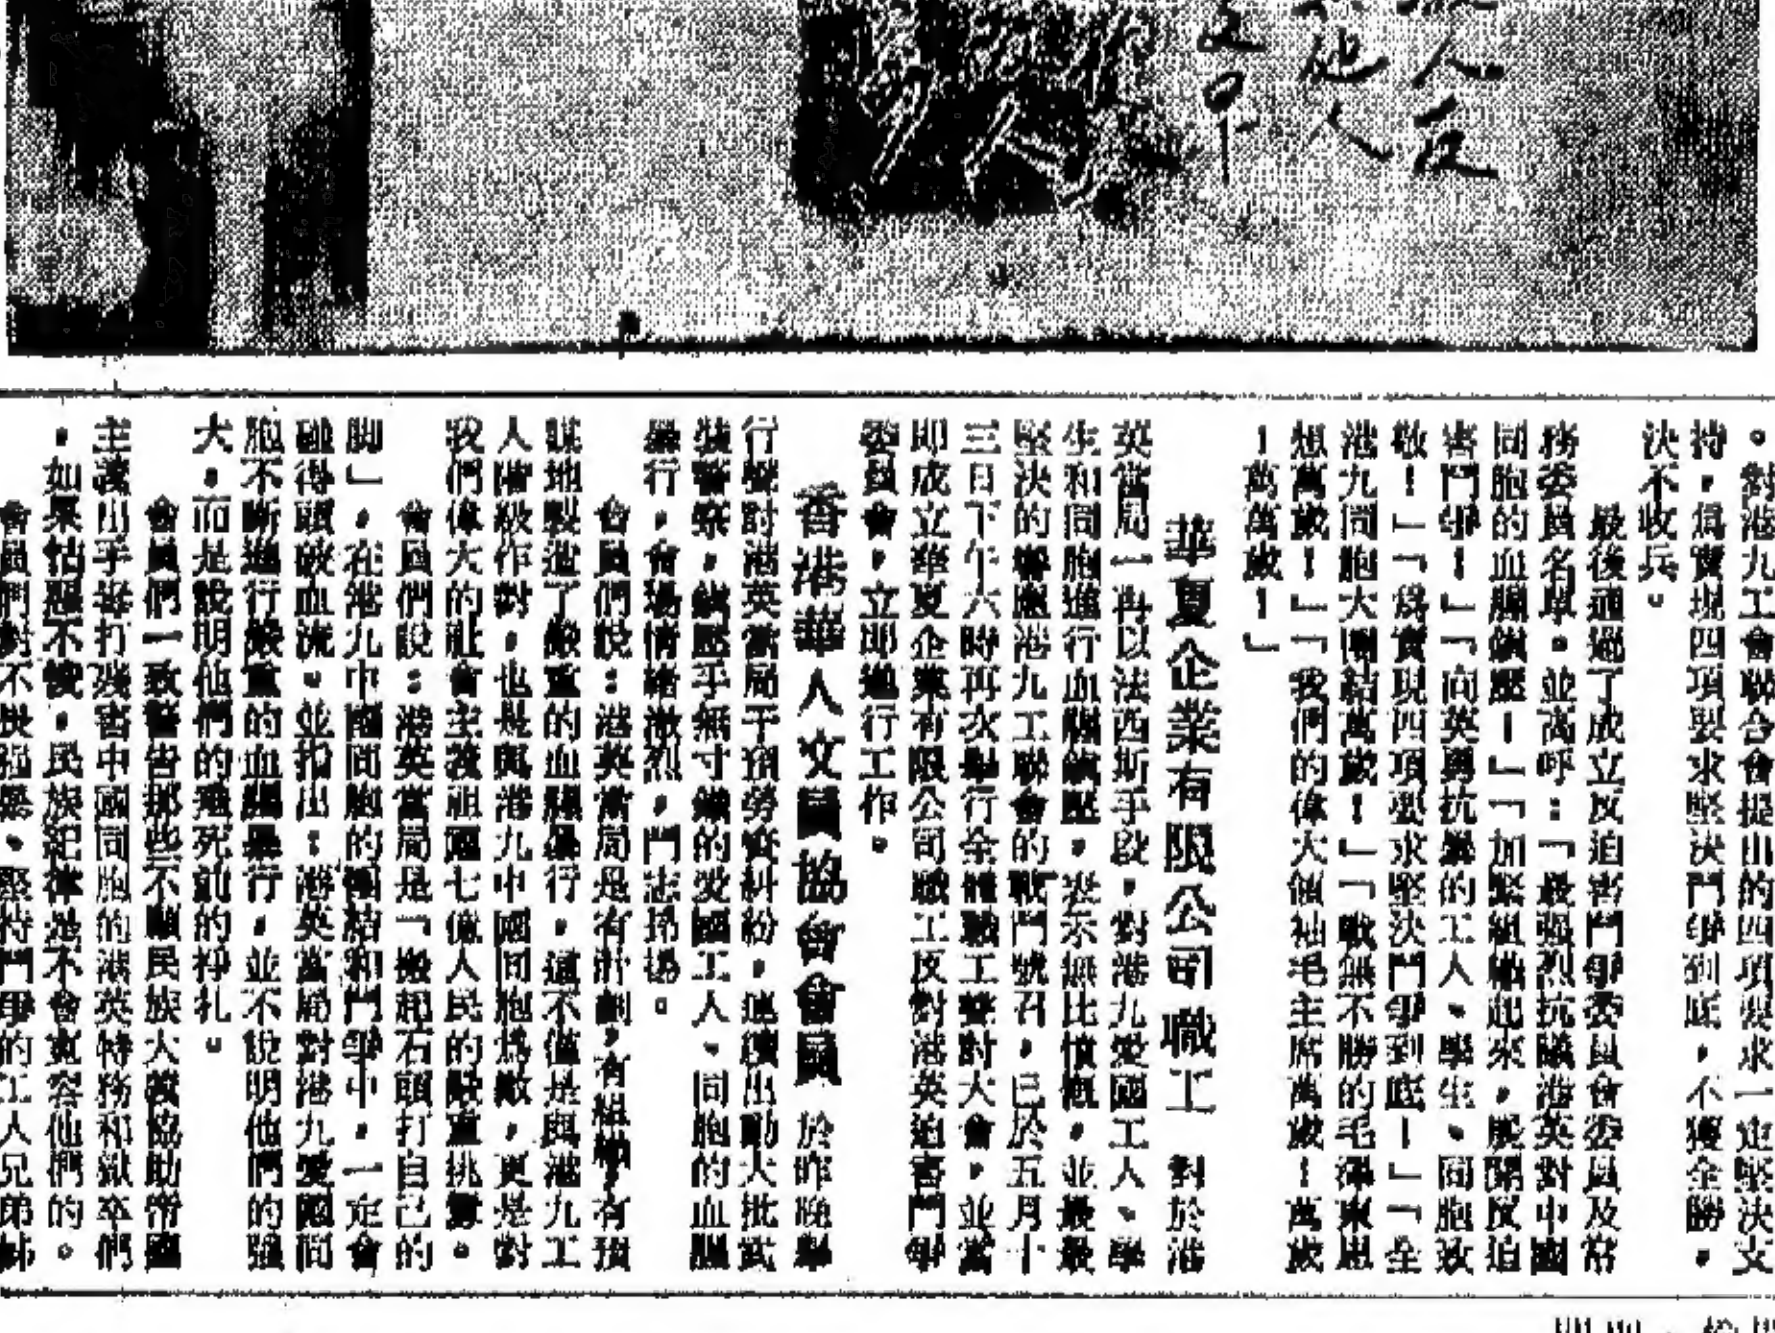 。對港九工會聯合會提出的四項要求一定堅決支
持，爲實現四項要求堅決鬥爭到底，不獲全勝，
決不收兵。
最後通過了成立反迫害鬥爭委員會委員及常
務委員名單。並高呼：「最強烈抗議港英對中國
同胞的血腥鎮壓！」「加緊組織起來，展開反迫
害鬥爭！」「向英勇抗暴的工人、學生、同胞致
敬！」「爲實現四項要求堅決鬥爭到底！」「全
港九同胞大團結萬歲！」「戰無不勝的毛澤東思
想萬歲！」「我們的偉大領袖毛主席萬歲！萬歲
！萬萬歲！」
華夏企業有限公司職工 對於港
英當局一再以法西斯手段，對港九愛國工人、學
生和同胞進行血腥鎮壓，表示無比憤慨，並最最
堅決的響應港九工聯會的戰鬥號召，已於五月十
三日下午六時再次舉行全體職工聲討大會，並當
即成立華夏企業有限公司職工反對港英迫害鬥爭
委員會，立即進行工作。
香港華人文員協會會員 於昨晚舉
行聲討港英當局干預勞資糾紛，連續出動大批武
裝警察，鎮壓手無寸鐵的愛國工人、同胞的血腥
暴行，會場情緒激烈，鬥志昂揚。
會員們說：港英當局是有計劃，有組織，有預
謀地製造了嚴重的血腥暴行，這不僅是與港九工
人階級作對，也是與港九中國同胞爲敵，更是對
我們偉大的社會主義祖國七億人民的嚴重挑釁。
會員們說：港英當局是「搬起石頭打自己的
脚」，在港九中國同胞的團結和鬥爭中，一定會
碰得頭破血流。並指出：港英當局對港九愛國同
胞不斷進行嚴重的血腥暴行，並不說明他們的強
大，而是說明他們的垂死前的掙扎。
會員們一致警吿那些不顧民族大義協助帝國
主義出手毒打殘害中國同胞的港英特務和獄卒們
，如果怙惡不悛，民族紀律是不會寬容他們的。
會員們對不畏強暴、堅持鬥爭的工人兄弟姊